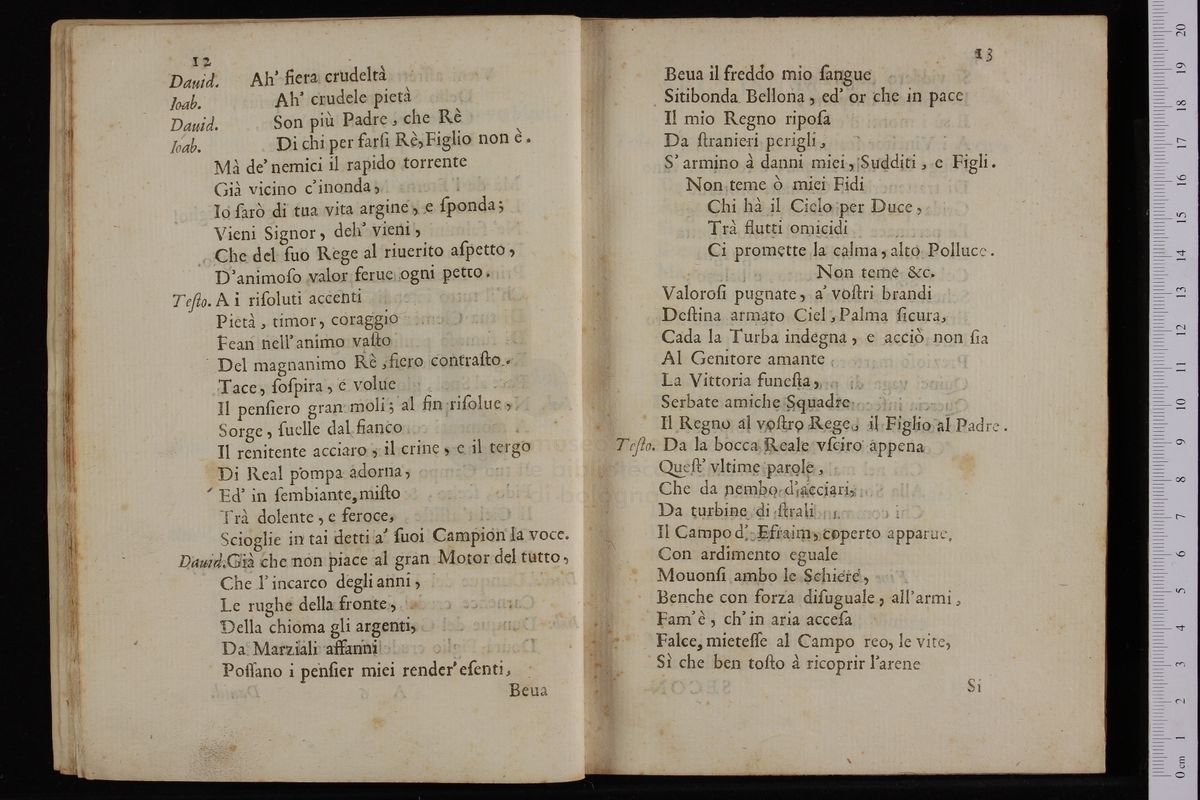 12
Dauid. Ah' fiera crudeltà
Ioab. Ah' crudele pietà
Dauid. Son più Padre, che Rè
Ioab. Di chi per farſi Rè, Figlio non è.
Mà de' nemici il rapido torrente
Già vicino c'inonda,
Io ſarò di tua vita argine, e ſponda;
Vieni Signor, deh' vieni,
Che del ſuo Rege al riuerito aſpetto,
D'animoſo valor ferue ogni petto.
Teſto. A i riſoluti accenti
Pietà, timor, coraggio
Fean nell'animo vaſto
Del magnanimo Rè, fiero contraſto.
Tace, ſoſpira, e volue
Il penſiero gran moli; al fin riſolue,
Sorge, ſuelle dal fianco
Il renitente acciaro, il crine, e il tergo
Di Real pompa adorna,
Ed' in ſembiante, miſto
Trà dolente, e feroce,
Scioglie in tai detti a' ſuoi Campion la voce.
Dauid. Già che non piace al gran Motor del tutto,
Che l'incarco degli anni,
Le rughe della fronte,
Della chioma gli argenti,
Da Marziali affanni
Poſſano i penſier miei render' eſenti,
Beua
13
Beua il freddo mio ſangue
Sitibonda Bellona, ed' or che in pace
Il mio Regno ripoſa
Da ſtranieri perigli,
S' armino à danni miei, Sudditi, e Figli.
Non teme ò miei Fidi
Chi hà il Cielo per Duce,
Trà flutti omicidi
Ci promette la calma, alto Polluce.
Non teme &c.
Valoroſi pugnate, a' voſtri brandi
Deſtina armato Ciel, Palma ſicura,
Cada la Turba indegna, e acciò non ſia
Al Genitore amante
La Vittoria funeſta,
Serbate amiche Squadre
Il Regno al voſtro Rege, il Figlio al Padre.
Teſto. Da la bocca Reale vſciro appena
Queſt' vltime parole,
Che da nembo d'acciari,
Da turbine di ſtrali
Il Campo d' Efraim, coperto apparue,
Con ardimento eguale
Mouonſi ambo le Schiere,
Benche con forza diſuguale, all'armi,
Fam'è, ch' in aria acceſa
Falce, mieteſſe al Campo reo, le vite,
Sì che ben toſto à ricoprir l'arene
Si